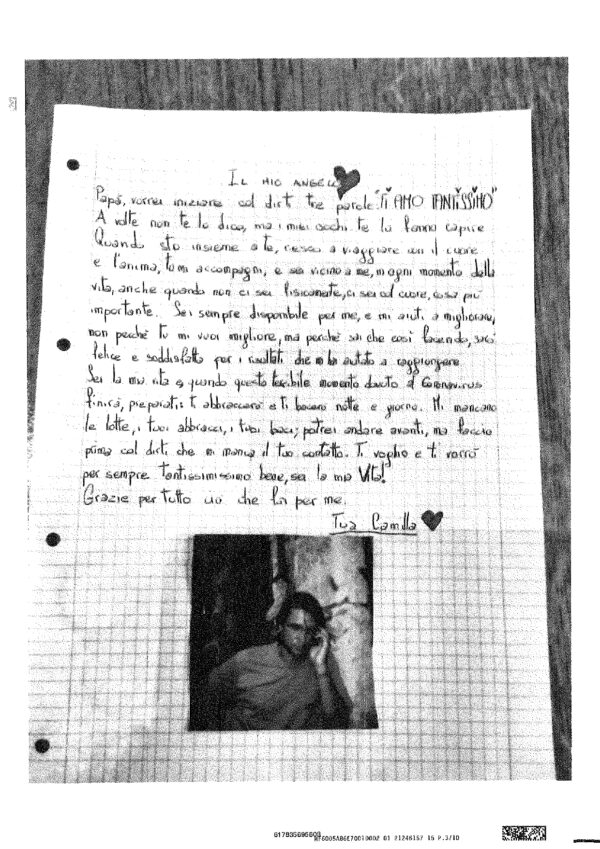 IL MIO ANGELO
Papà, vorrei iniziare col dirti tre parole "TI AMO TANTISSIMO"
A volte non te lo dico, ma i miei occhi te lo fanno capire
Quando sto insieme a te, riesco a viaggiare con il cuore
e l'anima, tu mi accompagni, e sei vicino a me, in ogni momento della
vita, anche quando non ci sei fisicamente, ci sei col cuore, cosa più
importante. Sei sempre disponibile per me, e mi aiuti a migliorare,
non perché tu mi vuoi migliore, ma perché sai che così facendo, sarò
felice e soddisfatta per i risultati che mi hai aiutato a raggiungere.
Sei la mia vita e quando questo terribile momento dovuto al Coronavirus
finirà, preparati: ti abbraccerò e ti bacerò notte e giorno. Mi mancano
le lotte, i tuoi abbracci, i tuoi baci; potrei andare avanti, ma faccio
prima col dirti che mi manca il tuo contatto. Ti voglio e ti vorrò
per sempre tantissimissimo bene, sei la mia Vita!
Grazie per tutto ciò che fai per me.
Tua Camilla
617835695603
01 21246157 16 P.3/10